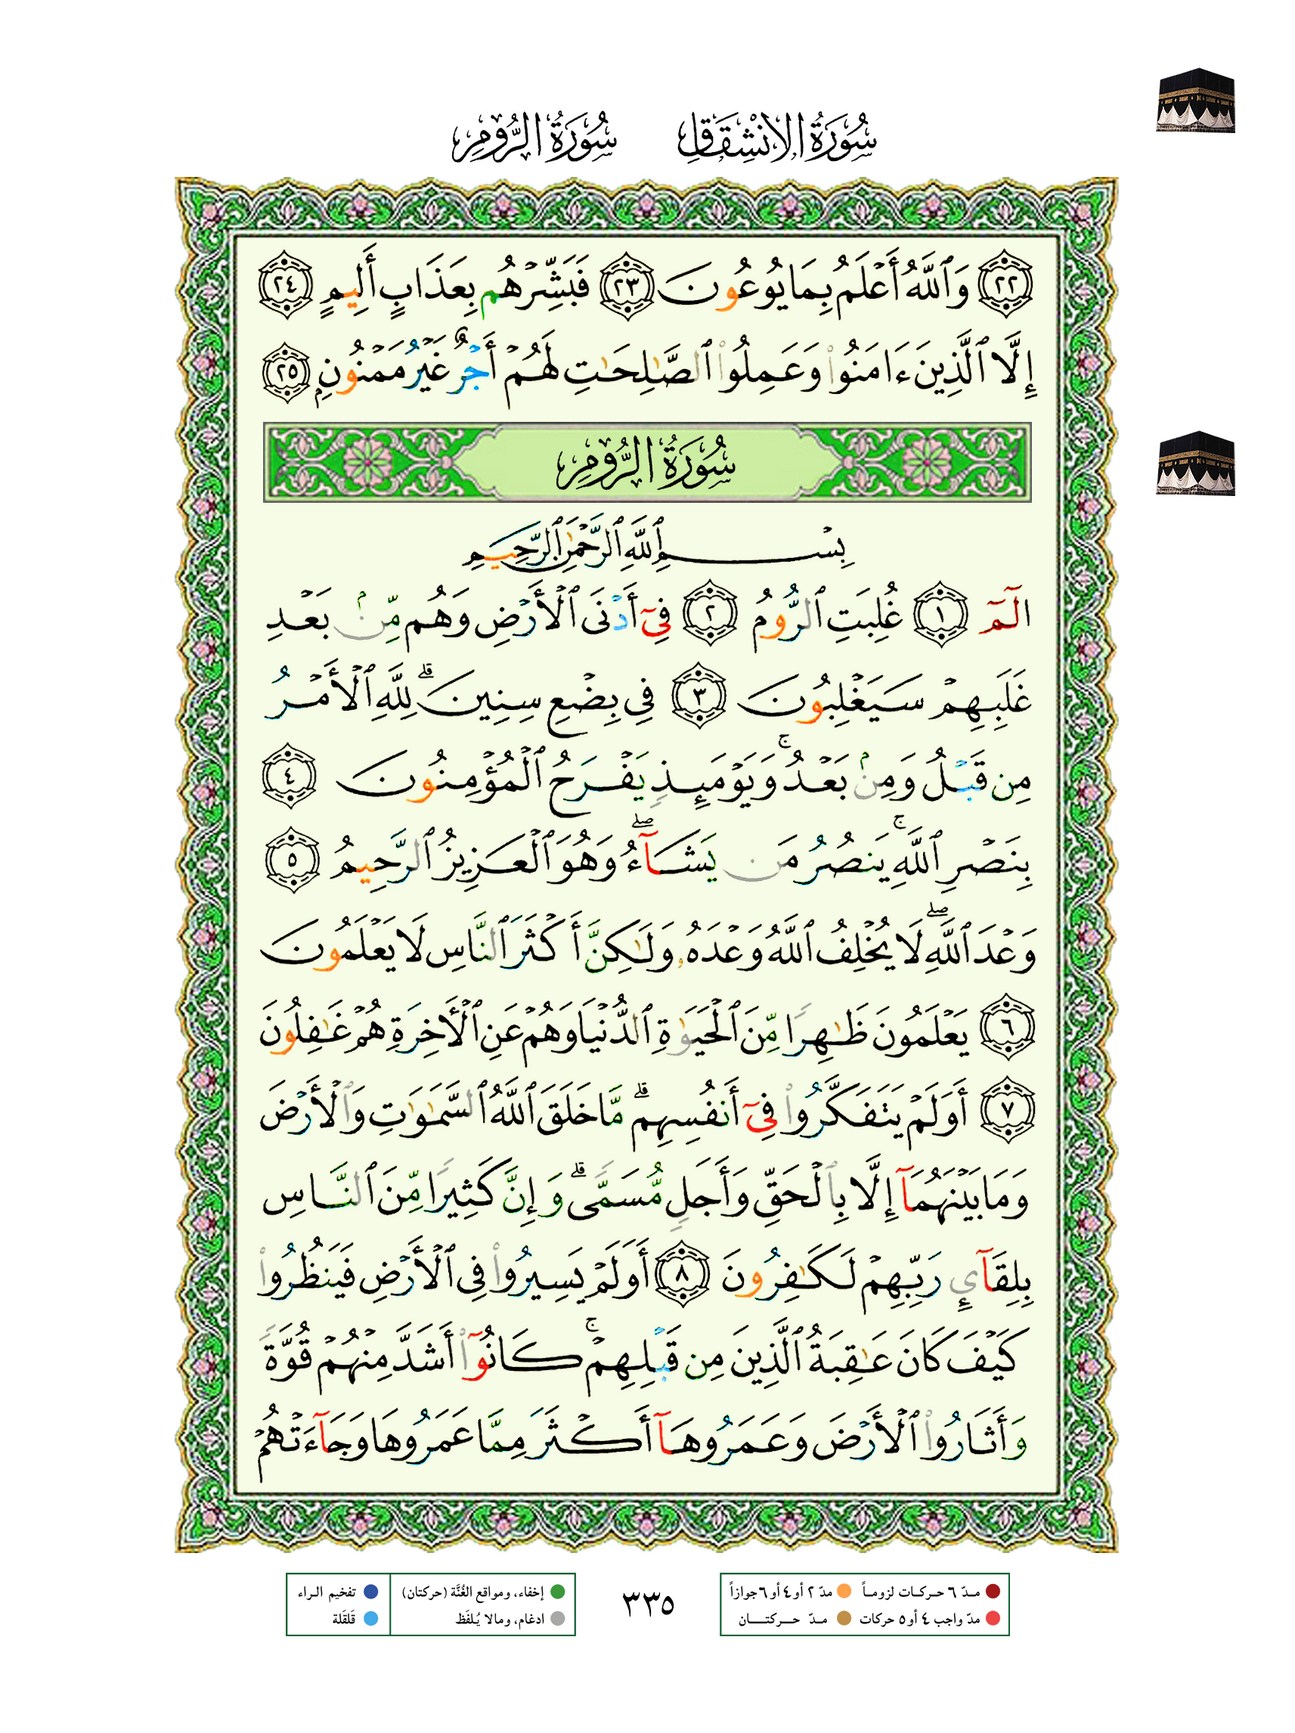 سُورَةُ الِانْشِقَاقِ سُورَةُ الرُّومِ
٢٢ وَٱللَّهُ أَعْلَمُ بِمَا يُوعُونَ ٢٣ فَبَشِّرْهُم بِعَذَابٍ أَلِيمٍ ٢٤
إِلَّا ٱلَّذِينَ ءَامَنُوا۟ وَعَمِلُوا۟ ٱلصَّٰلِحَٰتِ لَهُمْ أَجْرٌ غَيْرُ مَمْنُونٍۭ ٢٥
سُورَةُ الرُّومِ
بِسْمِ ٱللَّهِ ٱلرَّحْمَٰنِ ٱلرَّحِيمِ
الٓمٓ ١ غُلِبَتِ ٱلرُّومُ ٢ فِىٓ أَدْنَى ٱلْأَرْضِ وَهُم مِّنۢ بَعْدِ
غَلَبِهِمْ سَيَغْلِبُونَ ٣ فِى بِضْعِ سِنِينَ ۗ لِلَّهِ ٱلْأَمْرُ
مِن قَبْلُ وَمِنۢ بَعْدُ ۚ وَيَوْمَئِذٍ يَفْرَحُ ٱلْمُؤْمِنُونَ ٤
بِنَصْرِ ٱللَّهِ ۚ يَنصُرُ مَن يَشَآءُ ۖ وَهُوَ ٱلْعَزِيزُ ٱلرَّحِيمُ ٥
وَعْدَ ٱللَّهِ ۖ لَا يُخْلِفُ ٱللَّهُ وَعْدَهُۥ وَلَٰكِنَّ أَكْثَرَ ٱلنَّاسِ لَا يَعْلَمُونَ
٦ يَعْلَمُونَ ظَٰهِرًا مِّنَ ٱلْحَيَوٰةِ ٱلدُّنْيَا وَهُمْ عَنِ ٱلْءَاخِرَةِ هُمْ غَٰفِلُونَ
٧ أَوَلَمْ يَتَفَكَّرُوا۟ فِىٓ أَنفُسِهِم ۗ مَّا خَلَقَ ٱللَّهُ ٱلسَّمَٰوَٰتِ وَٱلْأَرْضَ
وَمَا بَيْنَهُمَآ إِلَّا بِٱلْحَقِّ وَأَجَلٍ مُّسَمًّى ۗ وَإِنَّ كَثِيرًا مِّنَ ٱلنَّاسِ
بِلِقَآئِ رَبِّهِمْ لَكَٰفِرُونَ ٨ أَوَلَمْ يَسِيرُوا۟ فِى ٱلْأَرْضِ فَيَنظُرُوا۟
كَيْفَ كَانَ عَٰقِبَةُ ٱلَّذِينَ مِن قَبْلِهِمْ ۚ كَانُوٓا۟ أَشَدَّ مِنْهُمْ قُوَّةً
وَأَثَارُوا۟ ٱلْأَرْضَ وَعَمَرُوهَآ أَكْثَرَ مِمَّا عَمَرُوهَا وَجَآءَتْهُمْ
مدّ ٦ حركات لزوماً مدّ ٢ أو ٤ أو ٦ جوازاً
مدّ واجب ٤ أو ٥ حركات مدّ حركتان
٣٣٥
إخفاء، ومواقع الغُنَّة (حركتان) تفخيم الراء
ادغام، ومالا يُلفَظ قَلقَلة